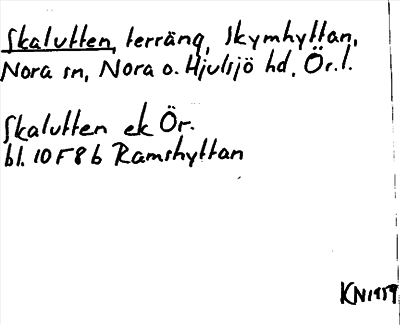 Skalutten, terräng, Skymhyttan,
Nora sn, Nora o. Hjulsjö hd, Ör. l.
Skalutten ek Ör.
bl. 10 F 8 b Ramshyttan
KN 1959